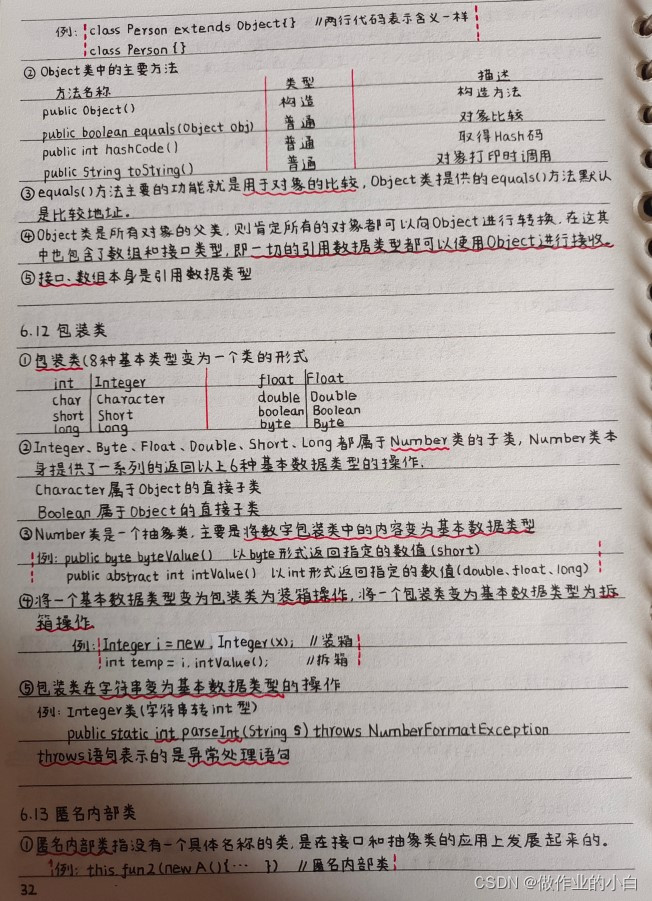 例: class Person extends Object{} //两行代码表示含义一样
class Person {}
② Object类中的主要方法
方法名称 类型 描述
public Object() 构造 构造方法
public boolean equals(Object obj) 普通 对象比较
public int hashCode() 普通 取得Hash码
public String toString() 普通 对象打印时调用
③ equals()方法主要的功能就是用于对象的比较,Object类提供的equals()方法默认
是比较地址.
④Object类是所有对象的父类,则肯定所有的对象都可以向Object进行转换,在这其
中也包含了数组和接口类型,即一切的引用数据类型都可以使用Object进行接收。
⑤接口、数组本身是引用数据类型
6.12 包装类
①包装类(8种基本类型变为一个类的形式
int Integer float Float
char Character double Double
short Short boolean Boolean
long Long byte Byte
②Integer、Byte、Float、Double、Short、Long都属于Number类的子类,Number类本
身提供了一系列的返回以上6种基本数据类型的操作.
Character属于Object的直接子类
Boolean 属于Object的直接子类
③Number类是一个抽象类,主要是将数字包装类中的内容变为基本数据类型
例: public byte byteValue() 以byte形式返回指定的数值(short)
public abstract int intValue() 以int形式返回指定的数值(double、float、long)
④将一个基本数据类型变为包装类为装箱操作,将一个包装类变为基本数据类型为拆
箱操作
例: Integer i = new Integer(x); //装箱
int temp = i.intValue(); //拆箱
⑤包装类在字符串变为基本数据类型的操作
例: Integer类(字符串转int型)
public static int parseInt(String s) throws NumberFormatException
throws语句表示的是异常处理语句
6.13 匿名内部类
①匿名内部类指没有一个具体名称的类,是在接口和抽象类的应用上发展起来的。
例: this.fun2(new A(){… }) //匿名内部类
32
CSDN @做作业的小白